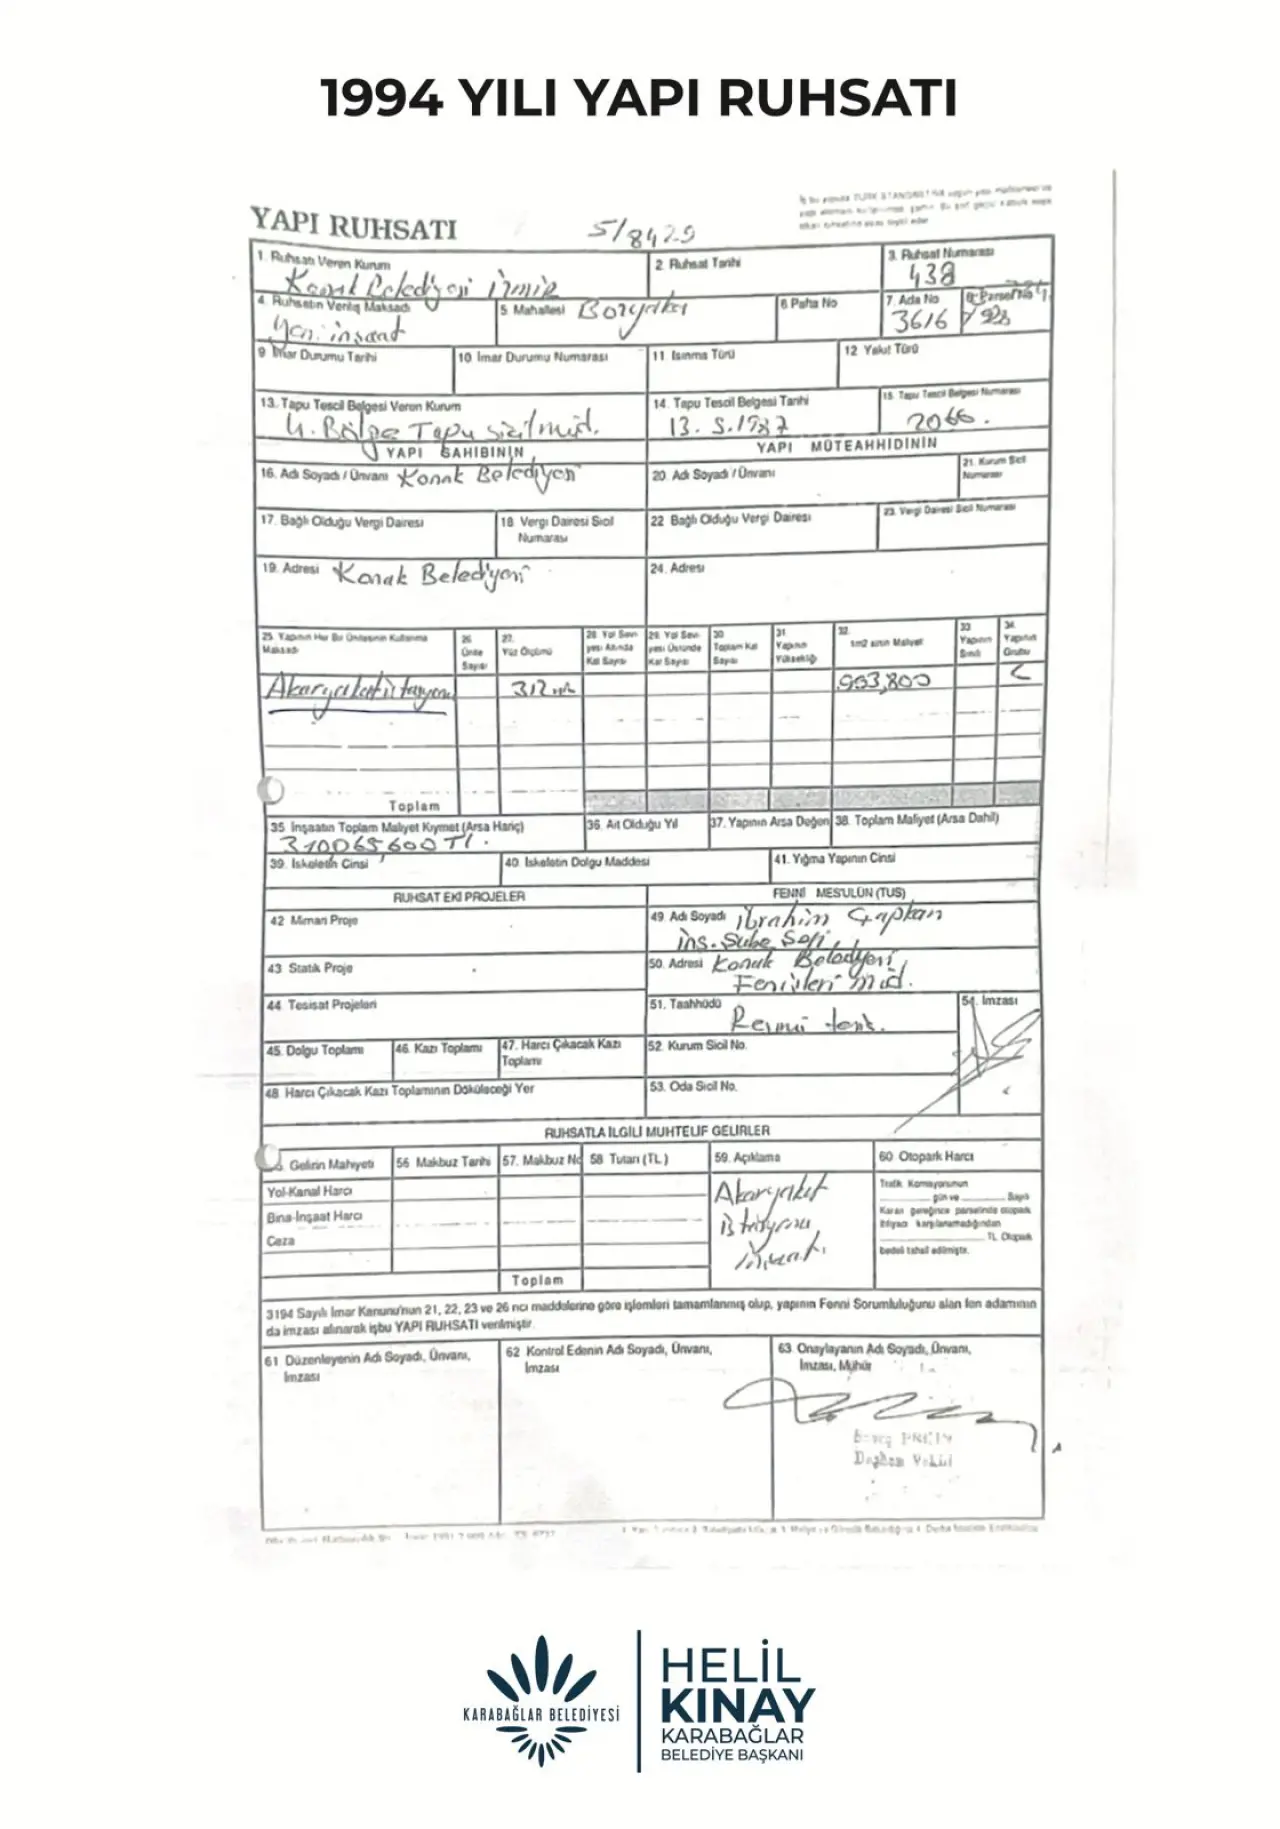 1994 YILI YAPI RUHSATI
YAPI RUHSATI
5/8429
1. Ruhsatı Veren Kurum
Konak Belediyesi İzmir
2 Ruhsat Tarihi
3. Ruhsat Numarası
438
4. Ruhsatın Veriliş Maksadı
Yeni inşaat
5 Mahallesi Bozyaka
6 Pafta No
7. Ada No
3616
8. Parsel No
9 İmar Durumu Tarihi
10 İmar Durumu Numarası
11 Isınma Türü
12 Yakıt Türü
13. Tapu Tescil Belgesi Veren Kurum
4. Bölge Tapu sicil müd.
14. Tapu Tescil Belgesi Tarihi
13. 5.1987
15. Tapu Tescil Belgesi Numarası
2066.
YAPI SAHİBİNİN
YAPI MÜTEAHHİDİNİN
16. Adı Soyadı / Ünvanı Konak Belediyesi
20. Adı Soyadı / Ünvanı
21. Kurum Sicil
Numarası
17. Bağlı Olduğu Vergi Dairesi
18 Vergi Dairesi Sicil
Numarası
22 Bağlı Olduğu Vergi Dairesi
23. Vergi Dairesi Sicil Numarası
19. Adresi Konak Belediyesi
24. Adresi
25. Yapının Her Bir Ünitesinin Kullanma
Maksadı
26
Ünite
Sayısı
27.
Yüz Ölçümü
28 Yol Sevi-
yesi Altında
Kat Sayısı
29. Yol Sevi-
yesi Üstünde
Kat Sayısı
30
Toplam Kat
Sayısı
31
Yapının
Yüksekliği
32.
1m2 sinin Maliyeti
33
Yapının
Sınıfı
34.
Yapının
Grubu
Akaryakıt istasyonu
312 m²
993,800
C
Toplam
35 İnşaatın Toplam Maliyet Kıymeti (Arsa Hariç)
310065600 Tl.
36. Ait Olduğu Yıl
37. Yapının Arsa Değeri
38. Toplam Maliyet (Arsa Dahil)
39. İskeletin Cinsi
40. İskeletin Dolgu Maddesi
41. Yığma Yapının Cinsi
RUHSAT EKİ PROJELER
FENNİ MES'ULÜN (TUS)
42 Mimari Proje
49. Adı Soyadı İbrahim Çapkan
İns. Şube Şefi
43 Statik Proje
50. Adresi Konak Belediyesi
Fenişleri müd.
44 Tesisat Projeleri
51. Taahhüdü
Resmi
54. İmzası
45. Dolgu Toplamı
46. Kazı Toplamı
47. Harcı Çıkacak Kazı
Toplamı
52. Kurum Sicil No.
48. Harcı Çıkacak Kazı Toplamının Döküleceği Yer
53. Oda Sicil No.
RUHSATLA İLGİLİ MUHTELİF GELİRLER
Gelirin Mahiyeti
56 Makbuz Tarihi
57. Makbuz No
58 Tutarı (TL)
59. Açıklama
60 Otopark Harcı
Yol-Kanal Harcı
Bina-İnşaat Harcı
Ceza
Toplam
Akaryakıt
İstasyonu
inşaatı.
Trafik Komisyonunun
gün ve Sayılı
Kararı gereğince parselinde otopark
ihtiyacı karşılanamadığından
TL Otopark
bedeli tahsil edilmiştir.
3194 Sayılı İmar Kanunu'nun 21, 22, 23 ve 26 ncı maddelerine göre işlemleri tamamlanmış olup, yapının Fenni Sorumluluğunu alan fen adamının
da imzası alınarak işbu YAPI RUHSATI verilmiştir.
61 Düzenleyenin Adı Soyadı, Ünvanı,
İmzası
62 Kontrol Edenin Adı Soyadı, Ünvanı,
İmzası
63. Onaylayanın Adı Soyadı, Ünvanı,
İmzası, Mühür
Başkan Vekili
KARABAĞLAR BELEDİYESİ
HELİL
KINAY
KARABAĞLAR
BELEDİYE BAŞKANI